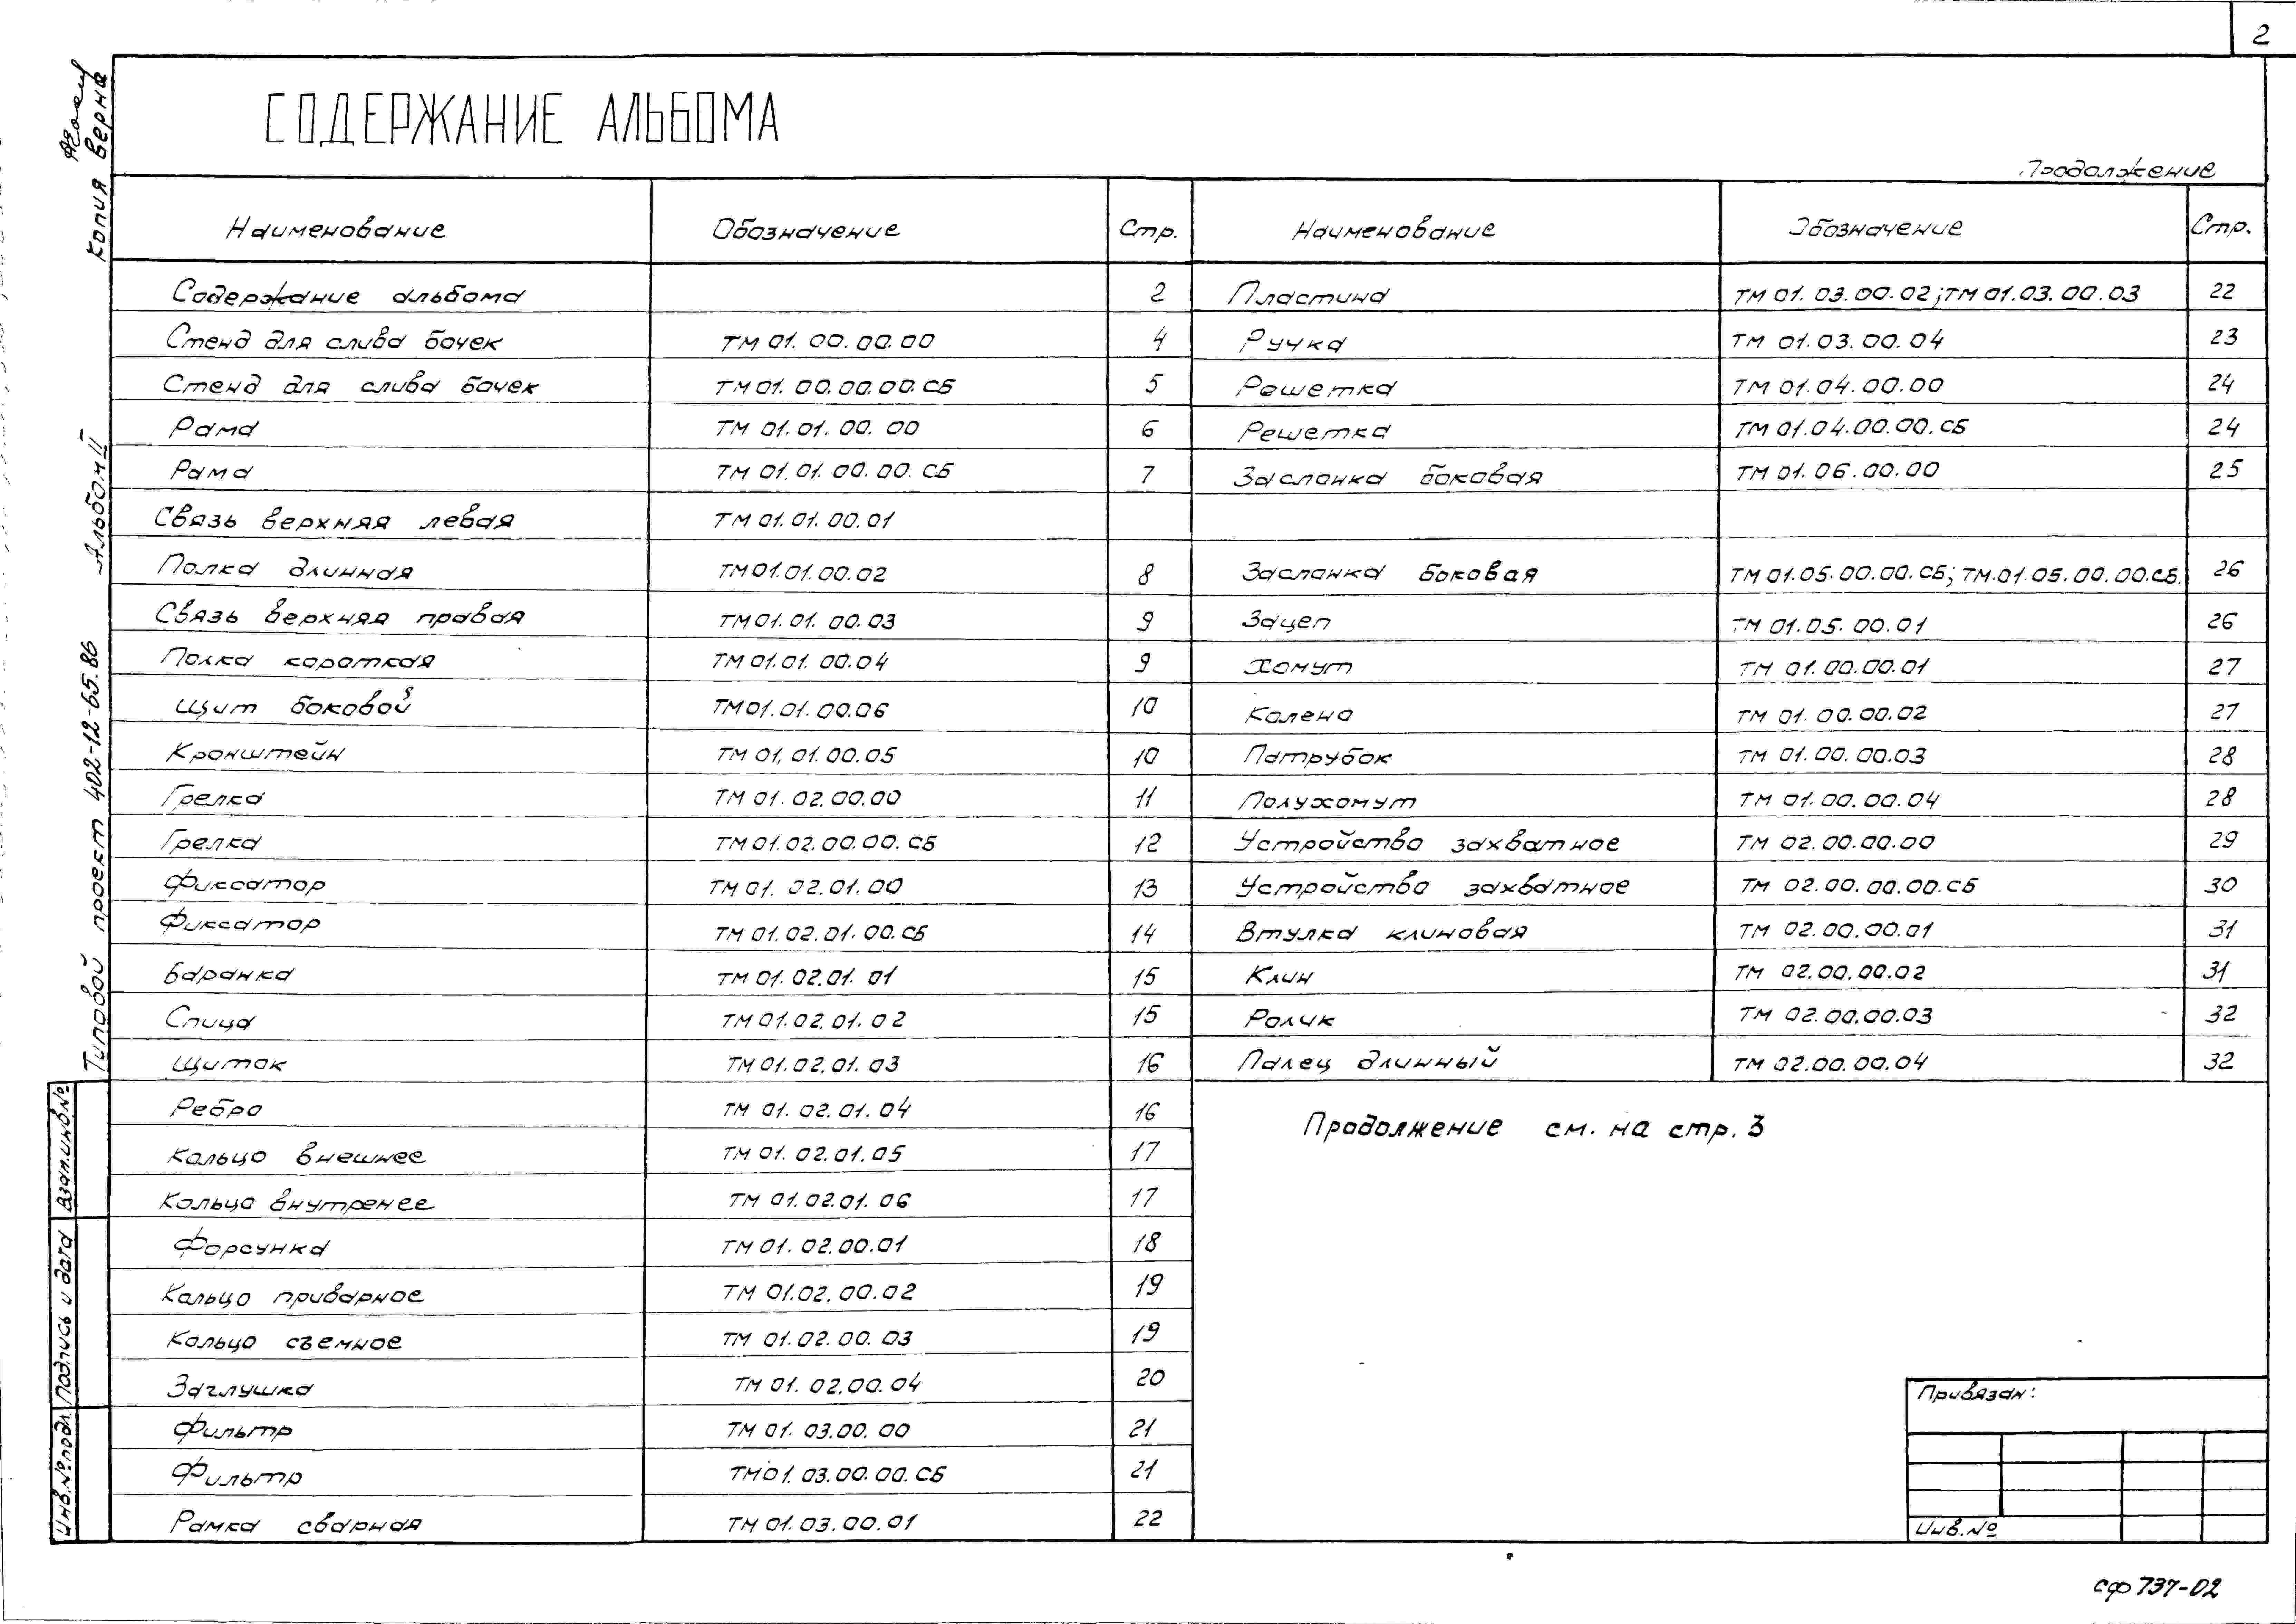 2
СОДЕРЖАНИЕ АЛЬБОМА
Продолжение
Наименование Обозначение Стр.
Содержание альбома 2
Стенд для слива бочек ТМ 01.00.00.00 4
Стенд для слива бочек ТМ 01.00.00.00.СБ 5
Рама ТМ 01.01.00.00 6
Рама ТМ 01.01.00.00.СБ 7
Связь верхняя левая ТМ 01.01.00.01
Полка длинная ТМ 01.01.00.02 8
Связь верхняя правая ТМ 01.01.00.03 9
Полка короткая ТМ 01.01.00.04 9
Щит боковой ТМ 01.01.00.06 10
Кронштейн ТМ 01.01.00.05 10
Грелка ТМ 01.02.00.00 11
Грелка ТМ 01.02.00.00.СБ 12
Фиксатор ТМ 01.02.01.00 13
Фиксатор ТМ 01.02.01.00.СБ 14
Баранка ТМ 01.02.01.01 15
Спица ТМ 01.02.01.02 15
Щиток ТМ 01.02.01.03 16
Ребро ТМ 01.02.01.04 16
Кольцо внешнее ТМ 01.02.01.05 17
Кольцо внутренее ТМ 01.02.01.06 17
Форсунка ТМ 01.02.00.01 18
Кольцо приварное ТМ 01.02.00.02 19
Кольцо съемное ТМ 01.02.00.03 19
Заглушка ТМ 01.02.00.04 20
Фильтр ТМ 01.03.00.00 21
Фильтр ТМ 01.03.00.00.СБ 21
Рамка сварная ТМ 01.03.00.01 22
Наименование Обозначение Стр.
Пластина ТМ 01.03.00.02; ТМ 01.03.00.03 22
Ручка ТМ 01.03.00.04 23
Решетка ТМ 01.04.00.00 24
Решетка ТМ 01.04.00.00.СБ 24
Заслонка боковая ТМ 01.06.00.00 25
Заслонка боковая ТМ 01.05.00.00.СБ; ТМ.01.05.00.00.СБ. 26
Зацеп ТМ 01.05.00.01 26
Хомут ТМ 01.00.00.01 27
Колено ТМ 01.00.00.02 27
Патрубок ТМ 01.00.00.03 28
Полухомут ТМ 01.00.00.04 28
Устройство захватное ТМ 02.00.00.00 29
Устройство захватное ТМ 02.00.00.00.СБ 30
Втулка клиновая ТМ 02.00.00.01 31
Клин ТМ 02.00.00.02 31
Ролик ТМ 02.00.00.03 32
Палец длинный ТМ 02.00.00.04 32
Продолжение см. на стр. 3
Привязан:
Инв.№
сф 737-02
Копия верна
Типовой проект 402-12-65.86 Альбом II
Взам.инв.№
Подпись и дата
Инв.№ подл.